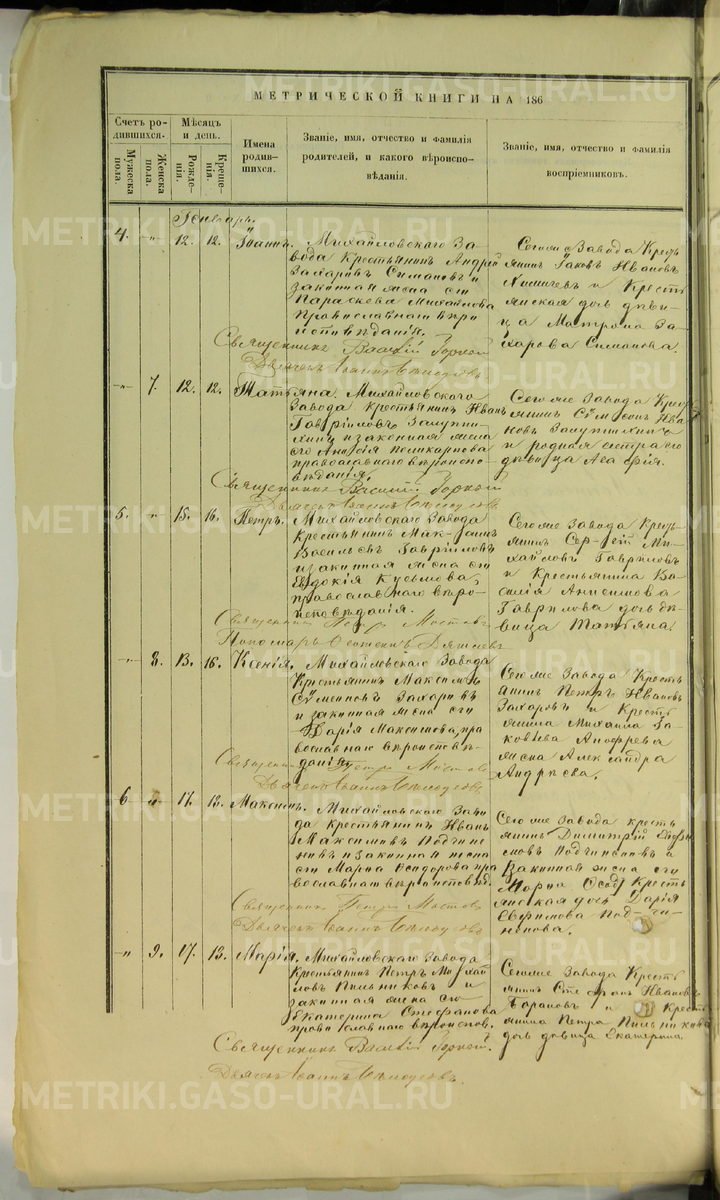 МЕТРИЧЕСКОЙ КНИГИ НА 186
Счетъ ро-
дившихся.
Мѣсяцъ
и день.
Имена
родив-
шихся.
Званіе, имя, отчество и фамилія
родителей, и какого вѣроиспо-
вѣданія.
Званіе, имя, отчество и фамилія
воспріемниковъ.
Мужеска
пола.
Женска
пола.
Рожде-
нія.
Креще-
нія.
Генварь.
4. " 12. 12. Іоаннъ. Михайловскаго За-
вода Крестьянинъ Андрей
Захаровъ Симановъ и
законная жена его
Параскева Михайлова
Православнаго вѣро
исповѣданія.
Священникъ Василій Горной
Дьячекъ Іоаннъ
Сегоже Завода Кресть
янинъ Іаковъ Ивановъ
и Кресть
янская дочь дѣви-
ца Матрона За-
харова Симанова.
" 7. 12. 12. Татьяна. Михайловскаго
Завода Крестьянинъ Иванъ
Гавріиловъ
и законная жена
его Анисія Поликарпова
православнаго вѣроиспо-
вѣданія.
Священникъ Василій Горной
Дьячекъ Іоаннъ
Сегоже Завода Кресть
янинъ Сѵмеонъ Ива
новъ
и родная сестра его
дѣвица Агафія.
5. " 15. 16. Петръ. Михайловскаго Завода
Крестьянинъ Максимъ
Васильевъ Гавриловъ
и законная жена его
Евдокія Кузьмова,
православнаго вѣро-
исповѣданія.
Священникъ Петръ Мостовъ
Пономарь
Сегоже Завода Кресть
янинъ Сергей Ми-
хайловъ Гавриловъ
и Крестьянина Ва-
силія Анисимова
Гаврилова дочь дѣ-
вица Татьяна.
" 8. 13. 16. Ксенія. Михайловскаго Завода
Крестьянинъ Максимъ
Сѵмеоновъ Захаровъ
и законная жена его
Дарія Максимова, пра
вославнаго вѣроисповѣ-
данія.
Священникъ Петръ Мостовъ
Дьячекъ Іоаннъ
Сегоже Завода Кресть
янинъ Петръ Ивановъ
Захаровъ и Кресть
янина Михаила Іа-
ковлева
жена Александра
Андреева.
6 " 17. 18. Максимъ. Михайловскаго Заво
да крестьянинъ Иванъ
Максимовъ Подчине
новъ и законная жена
его Марѳа Исидорова пра
вославнаго вѣроисповѣд.
Священникъ Петръ Мостовъ
Дьячекъ Іоаннъ
Сегоже Завода кресть
янинъ Димитрій
Подчиненовъ и
Кресть
янская дочь Дарія
Евфимова Подчи-
ненова.
" 9. 17. 18. Марія. Михайловскаго Завода
Крестьянинъ Петръ Михай
ловъ Пильниковъ и
законная жена его
Екатерина Стефанова
православнаго вѣроиспов.
Священникъ Василій Горной.
Дьячекъ Іоаннъ
Сегоже Завода Кресть
янинъ Стефанъ Ивановъ
Барановъ и Кресть
янина Петра Пильникова
дочь дѣвица Екатерина.
METRIKI.GASO-URAL.RU